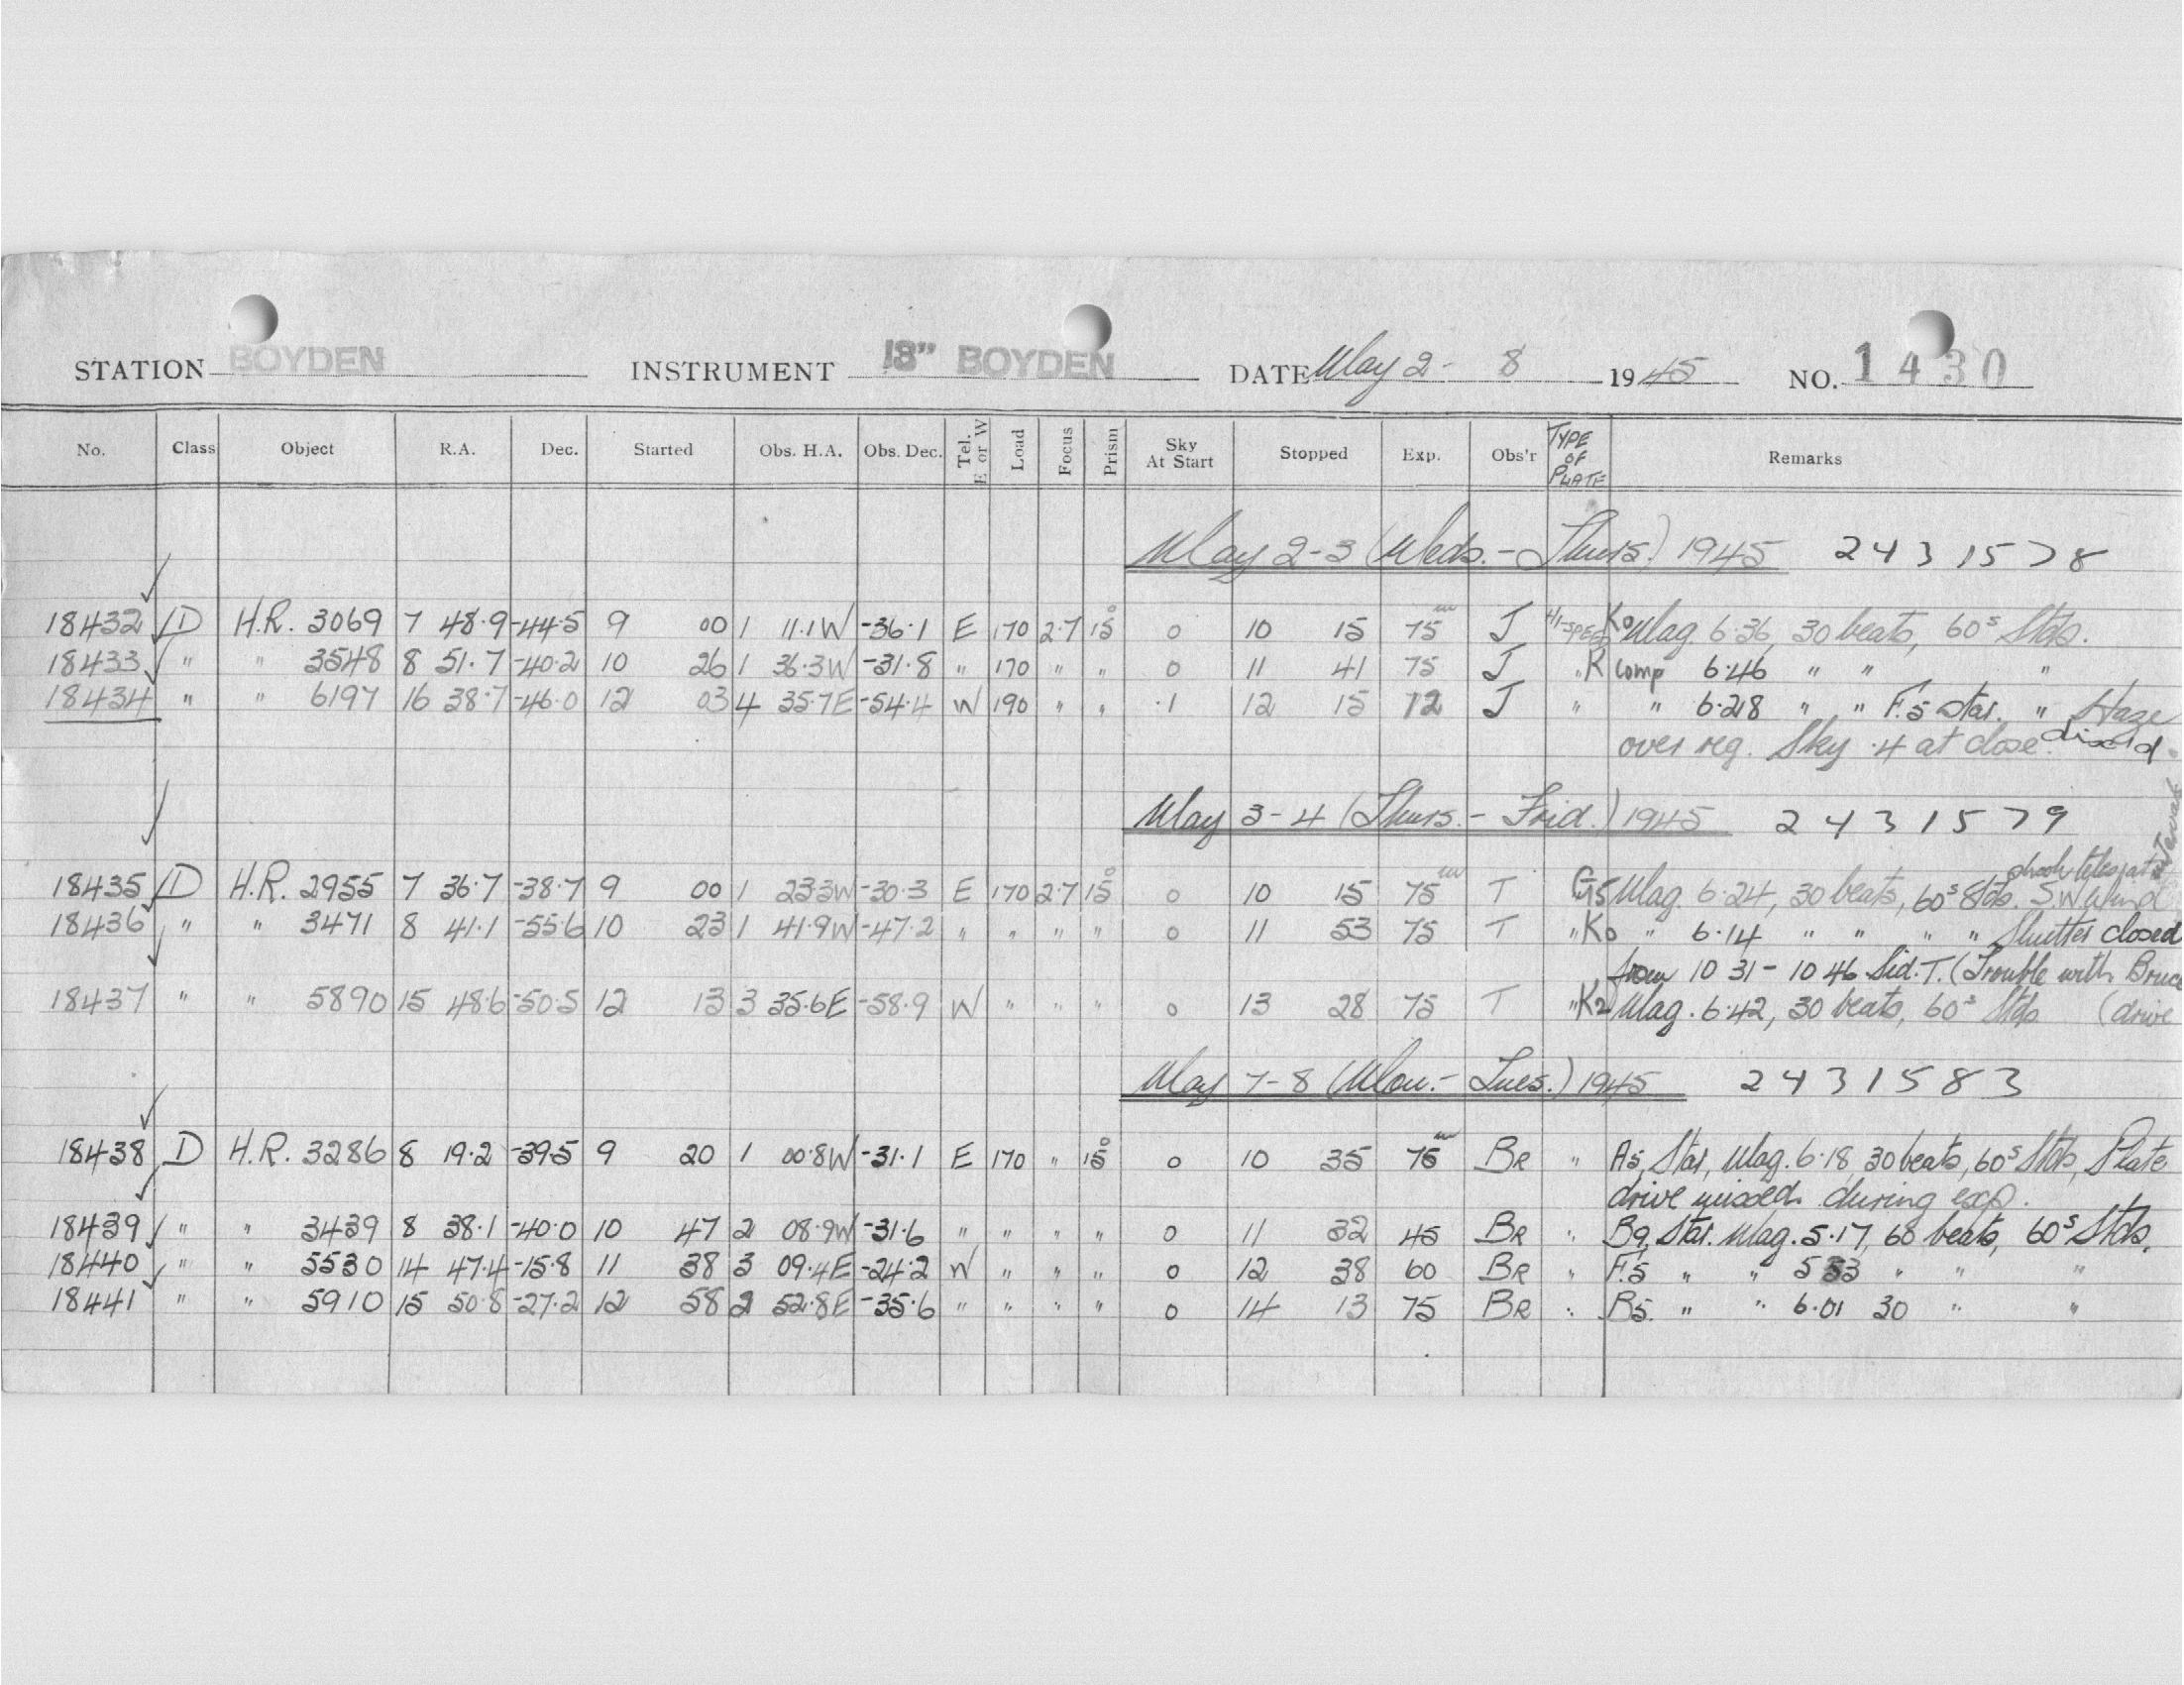 STATION BOYDEN INSTRUMENT 18" BOYDEN DATE May 2 - 8 1945 NO. 1430
No. Class Object R.A. Dec. Started Obs. H.A. Obs. Dec. Tel. E or W Load Focus Prism Sky At Start Stopped Exp. Obs'r TYPE OF PLATE Remarks
May 2-3 (Weds. - Thurs.) 1945 2431578
18432 D H.R. 3069 7 48.9 -44.5 9 00 1 11.1W -36.1 E 170 2.7 15° 0 10 15 75m J HI-SPEED K0 Mag 6.36, 30 beats, 60s Stds.
18433 " " 3548 8 51.7 -40.2 10 26 1 36.3W -31.8 " 170 " " 0 11 41 75 J " K comp 6.46 " " "
18434 " " 6197 16 38.7 -46.0 12 03 4 35.7E -54.4 W 190 " " .1 12 15 12 J " " 6.28 " " F5 Star. " Haze
over reg. Sky .4 at close. discd
May 3-4 (Thurs. - Frid.) 1945 2431579
18435 D H.R. 2955 7 36.7 -38.7 9 00 1 23.3W -30.3 E 170 2.7 15° 0 10 15 75m T G5 Mag. 6.24, 30 beats, 60s Stds. S.W. Wind
shook telescope at
18436 " " 3471 8 41.1 -55.6 10 23 1 41.9W -47.2 " " " " 0 11 53 75 T " K0 " 6.14 " " " " Shutter closed
from 10 31 - 10 46 Sid. T. (Trouble with Bruce
18437 " " 5890 15 48.6 -50.5 12 13 3 35.6E -58.9 W " " " 0 13 28 75 T " K2 Mag. 6.42, 30 beats, 60s Stds (drive
May 7-8 (Mon. - Tues.) 1945 2431583
18438 D H.R. 3286 8 19.2 -39.5 9 20 1 00.8W -31.1 E 170 " 15° 0 10 35 75m BR " A5, Star, Mag. 6.18, 30 beats, 60s Stds, Plate
drive missed during exp.
18439 " " 3439 8 38.1 -40.0 10 47 2 08.9W -31.6 " " " " 0 11 32 45 BR " B9, Star. Mag. 5.17, 60 beats, 60s Stds.
18440 " " 5530 14 47.4 -15.8 11 38 3 09.4E -24.2 W " " " 0 12 38 60 BR " F5 " " 5 33 " " "
18441 " " 5910 15 50.8 -27.2 12 58 2 52.8E -35.6 " " " " 0 14 13 75 BR " B5. " " 6.01 30 " "